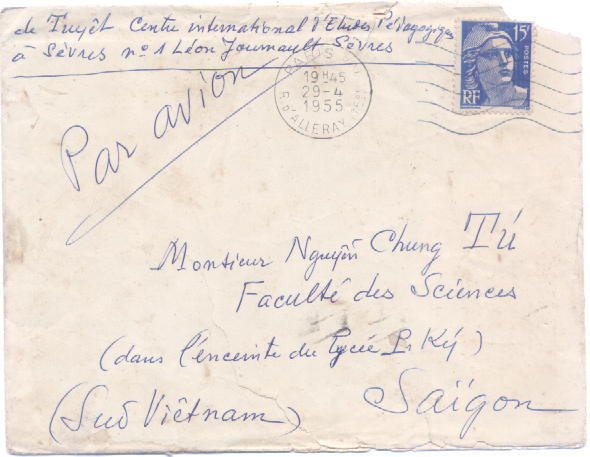 de Tuyêt Centre international d'Etudes Pédagogiques
à Sèvres nº 1 Léon Journault Sèvres
PARIS
19H45
29-4
1955
R. D'ALLERAY (15e)
15F
POSTES
RF
Par avion
Monsieur Nguyễn Chung Tú
Faculté des Sciences
(dans l'enceinte du lycée P. Ký)
(Sud Viêtnam) Saïgon